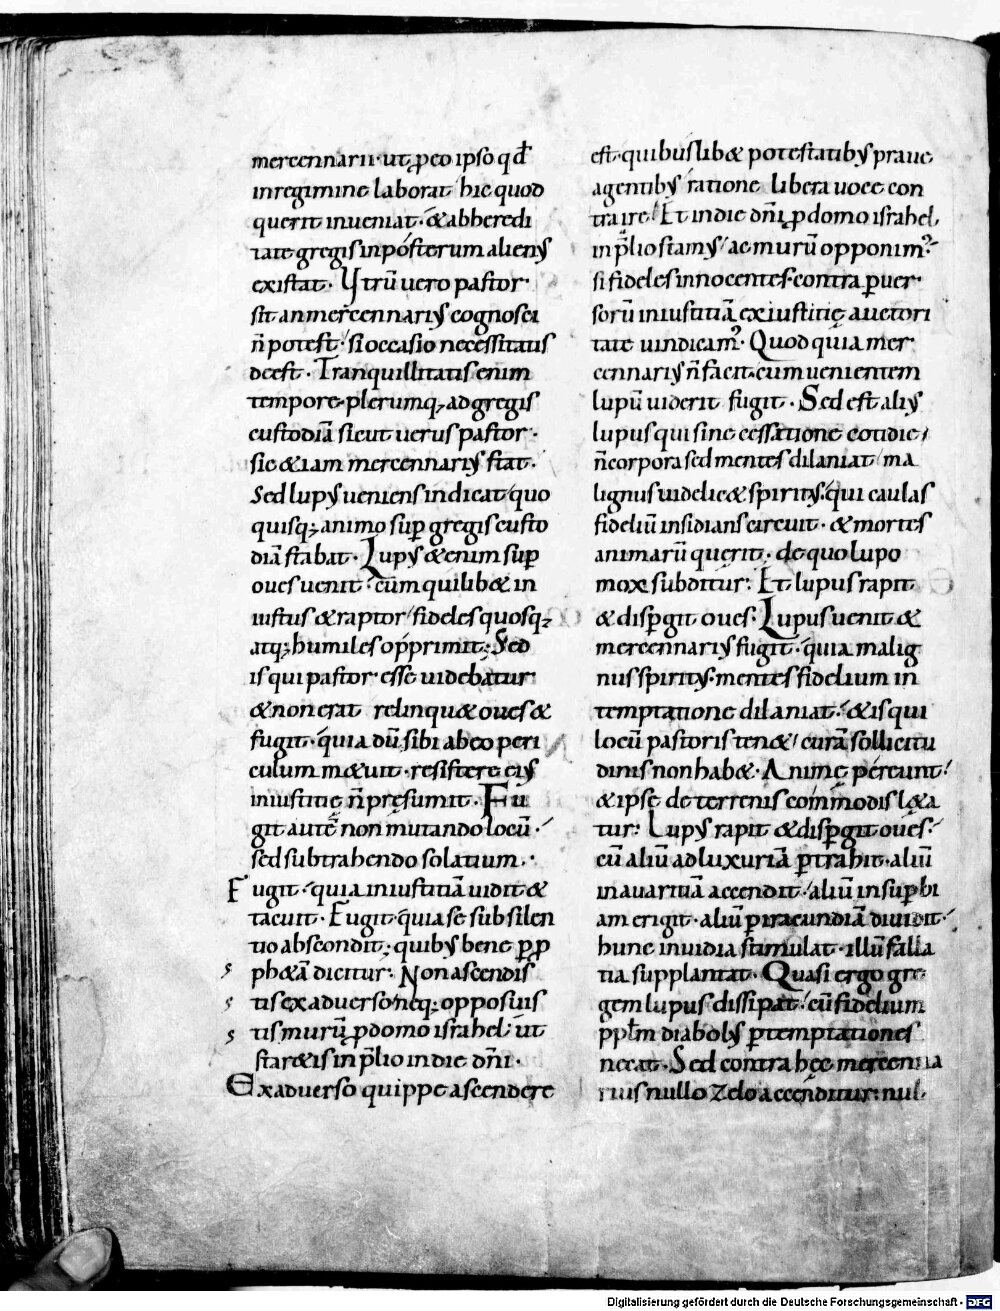 mercennarii· ut ꝓ eo ipso qđ
inregimine laborat hic quod
querit inueniat· & abheredi
tate gregis inpósterum alienus
existat· Vtrū uero pastor
sit an mercennarius cognosci
n̄ potest· si occasio necessitatis
deest· Tranquillitatis enim
tempore plerumq; ad gregis
custodiā sicut uerus pastor·
sic & iam mercennarius stat·
Sed lupus ueniens indicat quo
quisq; animo suꝑ gregis custo
diā stabat· Lupus & enim suꝑ
oues uenit· cum quilib& in
iustus & raptor fideles quosq;
atq; humiles opprimit; Sed
is qui pastor esse uidebatur
& non erat relinqu& oues &
fugit· quia dū sibi ab eo peri
culum m&uit· resistere eius
iniustitię n̄ pręsumit· Fu
git autē non mutando locū·
sed subtrahendo solatium·
Fugit· quia iniustitiā uidit &
tacuit· Fugit· quia se sub silen
tio abscondit; quibus bene ꝑ ꝓ
ph&ā dicitur· Non ascendis
tis exaduerso neq; opposuis
tis murū ꝓ domo israhel· ut
star&is in p̄lio in die dn̄i·
Exaduerso quippe ascendere
est· quibuslib& potestatibus praue
agentibus ratione libera uoce con
traire· Et in die dn̄i ꝓ domo israhel,
in p̄lio stamus ac murū opponim᷒
si fideles innocentes contra ꝑuer
sorū iniustitiā ex iustitię auctori
tate uindicam᷒· Quod quia mer
cennarius n̄ facit cum uenientem
lupū uiderit fugit· Sed est alius
lupus qui sine cessatione cotidie
n̄ corpora sed mentes dilaniat ma
lignus uidelic& spiritus· qui caulas
fideliū insidians circuit· & mortes
animarū querit· de quo lupo
mox subditur· Et lupus rapit
& disꝑgit oues· Lupus uenit &
mercennarius fugit· quia malig
nus spiritus mentes fidelium in
temptatione dilaniat· & is qui
locū pastoris ten& curā sollicitu
dinis non hab&· Animę pereunt
& ipse de terrenis commodis l&a
tur· Lupus rapit & disꝑgit oues·
cū aliū ad luxuriā ꝑtrahit· aliū
in auaritiā accendit· aliū in suꝑbi
am erigit· aliū ꝑ iracundiā diuidit·
hunc inuidia stimulat· illū falla
tia supplantat· Quasi ergo gre
gem lupus dissipat cū fidelium
pplm̄ diabolus ꝑ temptationes
necat· Sed contra hęc mercenna
rius nullo zelo accenditur· nul
Digitalisierung gefördert durch die Deutsche Forschungsgemeinschaft - DFG